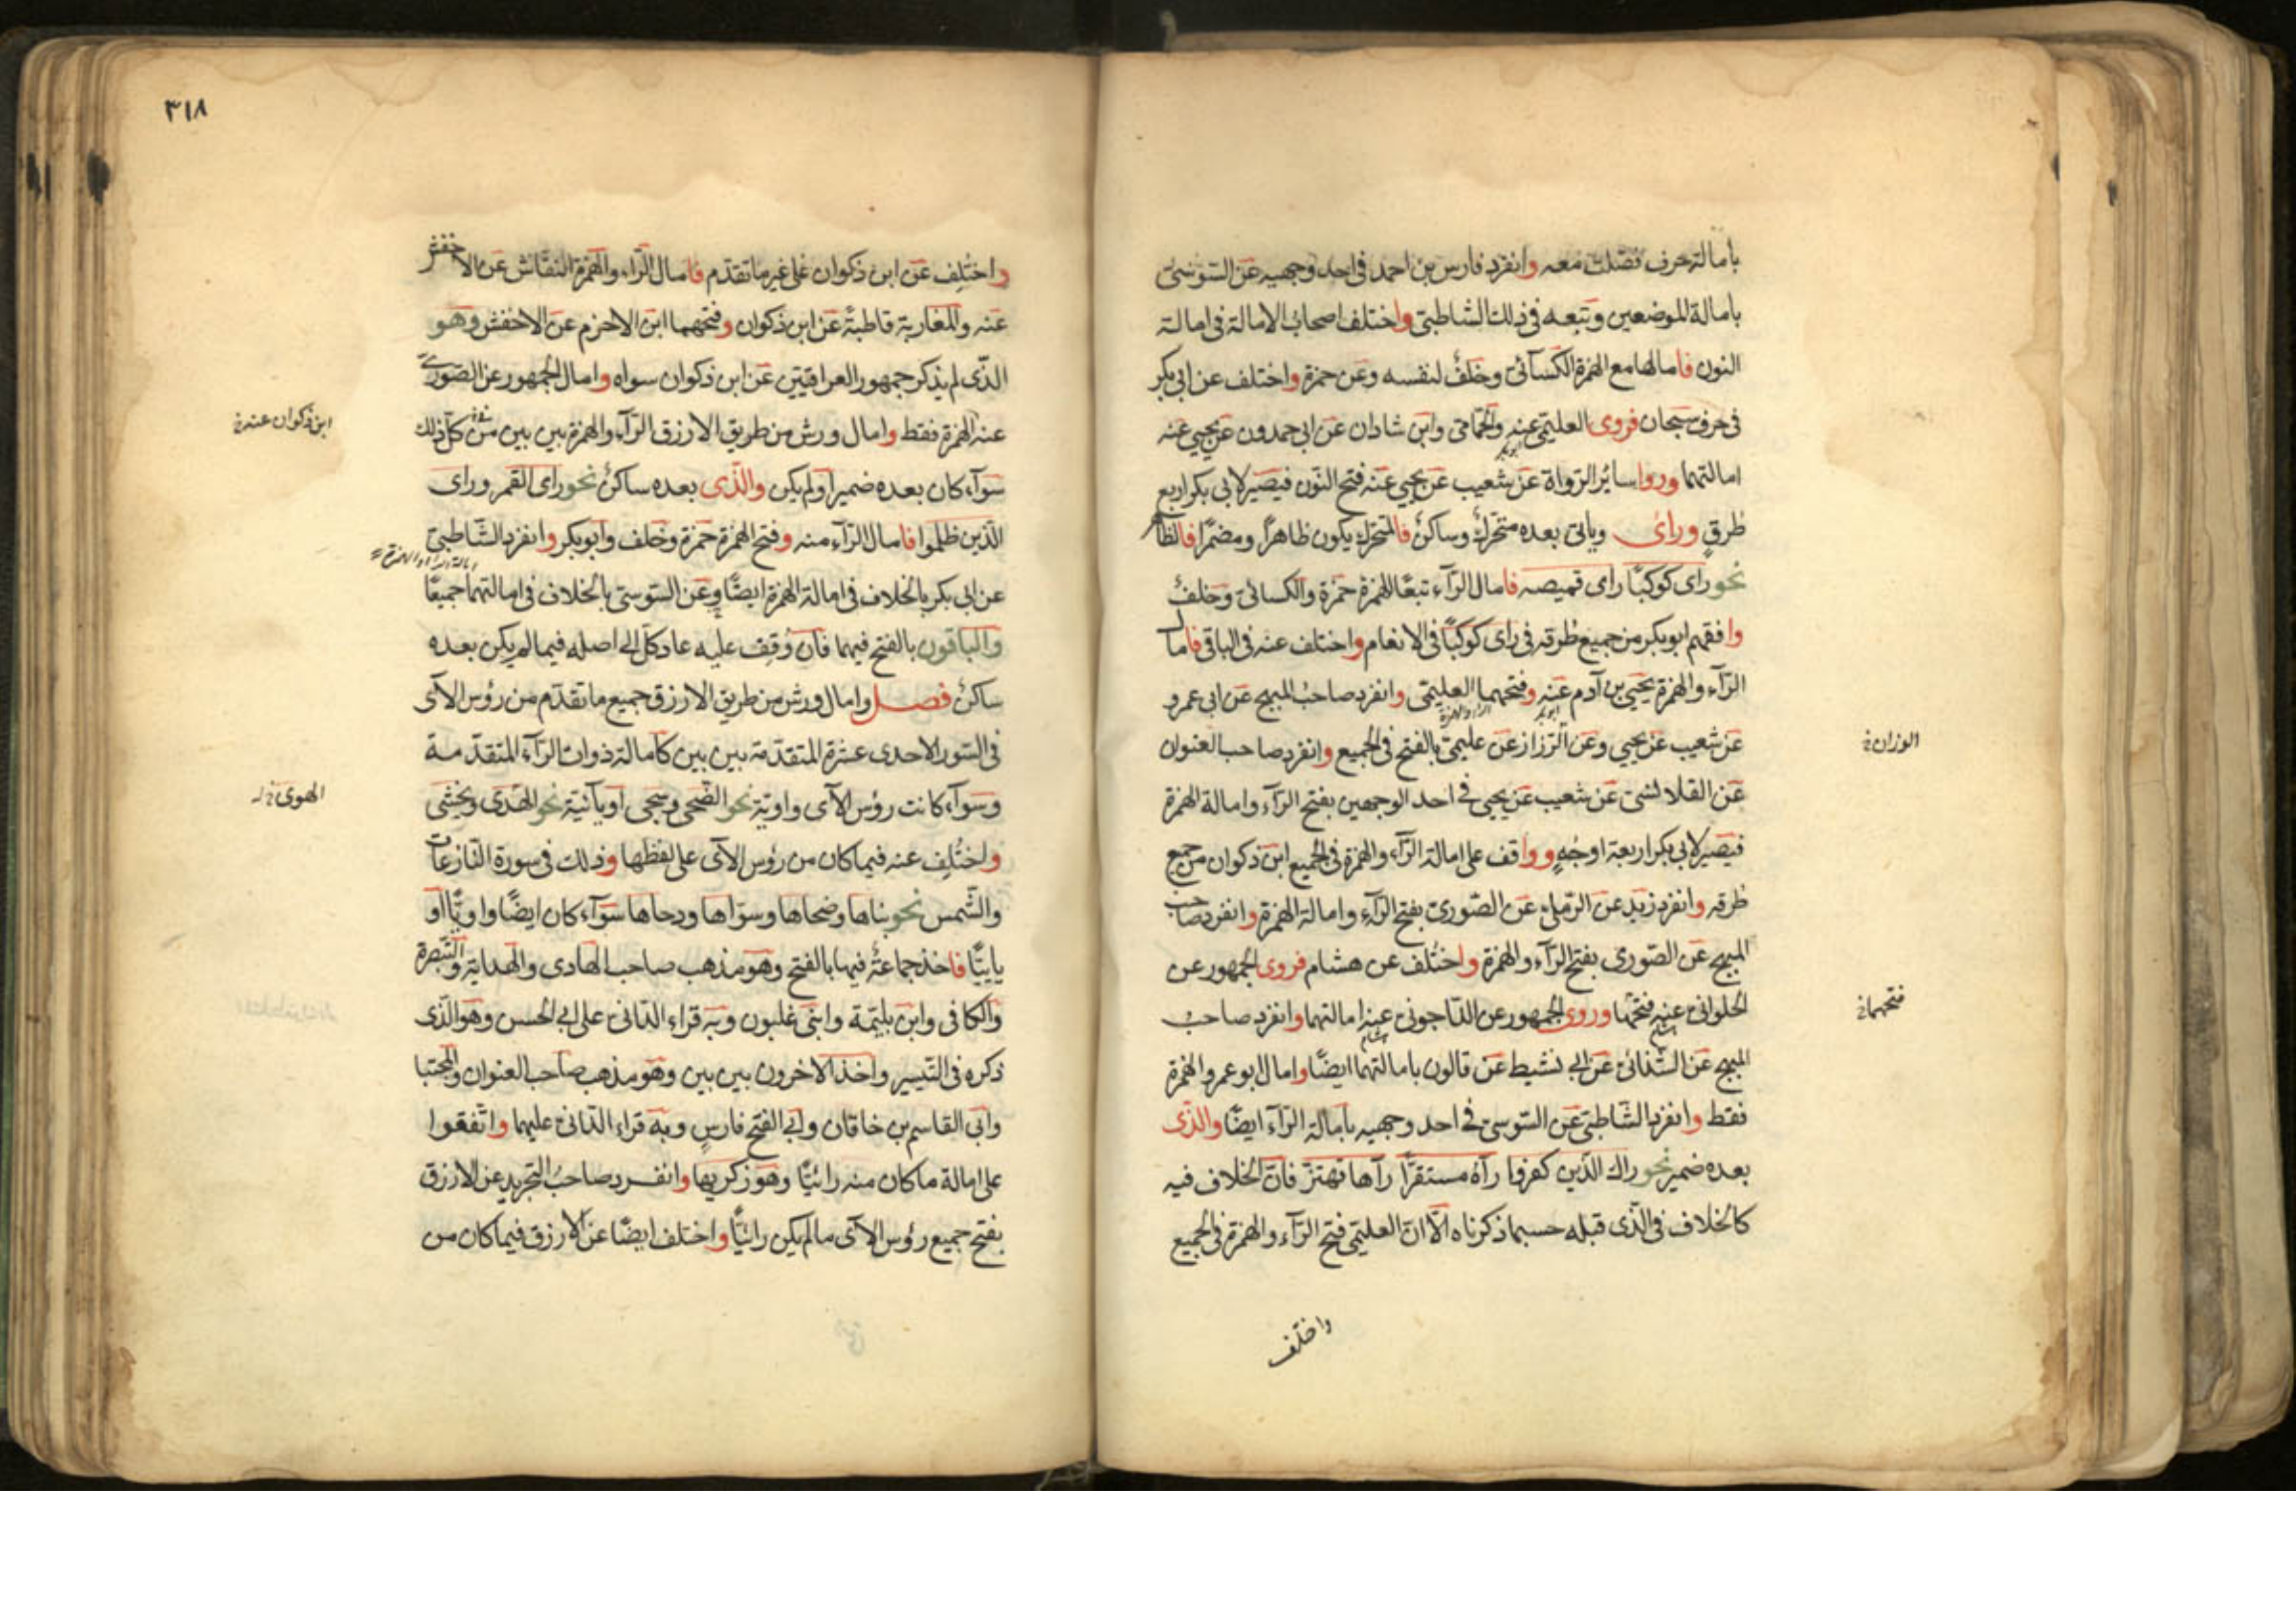 بامالة حرف فصّلت معه وانفرد فارس بن احمد فى احد وجهيه عن السّوسىّ
بامالة الموضعين وتبعه فى ذلك الشاطبىّ واختلف اصحاب الامالة فى امالة
النون فامالها مع الهمزة الكسآئىّ وخلفٌ لنفسه وعن حمزة واختلف عن ابى بكر
فى حرف سبحان فروى العليمىّ عنه والحمّامى وابن شاذان عن ابى حمدون عن يحيى عنه
ابو بكر
امالتهما وروا سائر الرّواة عن شعيب عن يحيى عنه فتح النّون فيصير لابى بكر اربع
طرقٍ وراى وياتى بعده متحّركٌ وساكنٌ فالمتحّرك يكون ظاهرًا ومضمرًا فالظا
نحو راى كوكبًا راى قميصه فامال الرّآء تبعًا للهمزة حمزة والكسائىّ وخلفٌ
وافقهم ابو بكر من جميع طرقه فى راى كوكبًا فى الانعام واختلف عنه فى الباقى فامال
الرّآء والهمزة يحيى بن آدم عنه وفتحهما العليمىّ وانفرد صاحب المبهج عن ابى عمرو
ابو بكر الراء والهمزة
عن شعيب عن يحيى وعن الرّزاز عن عليمىّ بالفتح فى الجميع وانفرد صاحب العنوان
الوزان خ
عن القلانسىّ عن شعيب عن يحيى فى احد الوجهين بفتح الرّآء وامالة الهمزة
فيصير لابى بكر اربعة اوجهٍ ووافق على امالة الرّآء والهمزة فى الجميع ابن ذكوان من جميع
طرقه وانفرد زيد عن الرّملى عن الصّورىّ بفتح الرّآء وامالة الهمزة وانفرد صاحب
المبهج عن الصّورى بفتح الرّآء والهمزة واختُلف عن هشام فروى الجمهور عن
الحلوانىّ عنه فتحها وروى الجمهور عن الدّاجونى عنه امالتهما وانفرد صاحب
هشام هشام
فتحهما خ
المبهج عن الشّذائىّ عن ابى نشيط عن قالون بامالتهما ايضًا وامال ابو عمرو الهمزة
فقط وانفرد الشّاطبىّ عن السّوسىّ فى احد وجهيه بامالة الرّآء ايضًا والّذى
بعده ضمير نحو راك الذين كفروا رآهُ مستقرًّا رآها تهتزّ فانّ الخلاف فيه
كالخلاف فى الّذى قبله حسبما ذكرناه الّا انّ العليمىّ فتح الرّآء والهمزة فى الجميع
واختلف
٣١٨
واختُلِف عن ابن ذكوان على غير ما تقدّم فامال الرّاء والهمزة النقّاش عن الاخفش
عنه والمغاربة قاطبةً عن ابن ذكوان وفتحهما ابن الاخرم عن الاخفش وهو
الذّى لم يذكر جمهور العراقيّين عن ابن ذكوان سواه وامال الجمهور عن الصّورىّ
عنه الهمزة فقط وامال ورش من طريق الازرق الرّآء والهمزة بين بين من كلّ ذلك
ابن ذكوان عنه خ
سوآء كان بعده ضميرًا ولم يكن والذّى بعده ساكنٌ نحو راى القمر وراى
الذّين ظلموا فامال الرّآء منه وفتح الهمزة حمزة وخلف وابو بكر وانفرد الشّاطبىّ
امالة الراء والهمزة
عن ابى بكر بالخلاف فى امالة الهمزة ايضًا وعن السّوسىّ بالخلاف فى امالتهما جميعًا
والباقون بالفتح فيهما فان وُقِف عليه عاد كلّ الى اصله فيما لم يكن بعده
ساكنٌ فصل وامال ورش من طريق الازرق جميع ما تقدّم من رؤس الآى
فى السّور الاحدى عشرة المتقدّمة بين بين كامالة ذوات الرّآء المتقدّمة
وسوآء كانت رؤس الآى واويّة نحو الضّحى وسجى او يآئيّة نحو الهدى ويخشى
الهوى خ
واختُلِف عنه فيما كان من رؤس الآى على لفظ ها وذلك فى سورة النّازعات
والشّمس نحو بناها وضحاها وسوّاها ودحاها سوآء كان ايضًا واويًّا او
يايیًّا فاخذ جماعةٌ فيها بالفتح وهو مذهب صاحب الهادى والهداية والتّبصرة
والكافى وابن بليّمة وابنى غلبون وبه قراء الدّانىّ على ابى الحسن وهو الّذى
ذكره فى التّيسير واخذ الاخرون بين بين وهو مذهب صاحب العنوان والمجتبا
وابى القاسم بن خاقان وابى الفتح فارس وبه قراء الدّانىّ عليهما واتّفقوا
على امالة ما كان منه رائيًّا وهو ذكريها وانفرد صاحب التّجريد عن الازرق
بفتح جميع رؤس الآى ما لم يكن رائيًّا واختلف ايضًا عن الازرق فيما كان من